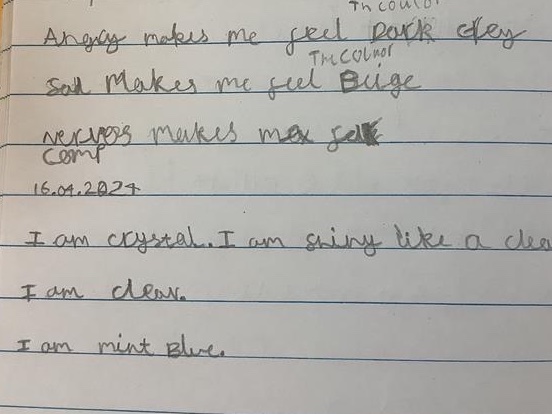 The coulor
Angry makes me feel Dark Grey
The Coluor
Sad Makes me feel Beige
nervous makes me
comp
16.04.2024
I am crystal. I am shiny like a
I am clear.
I am mint Blue.